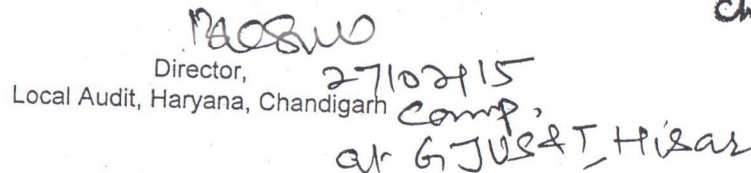 Ch
Director,
27/02/15
Local Audit, Haryana, Chandigarh
Camp,
at GJUS&T, Hisar